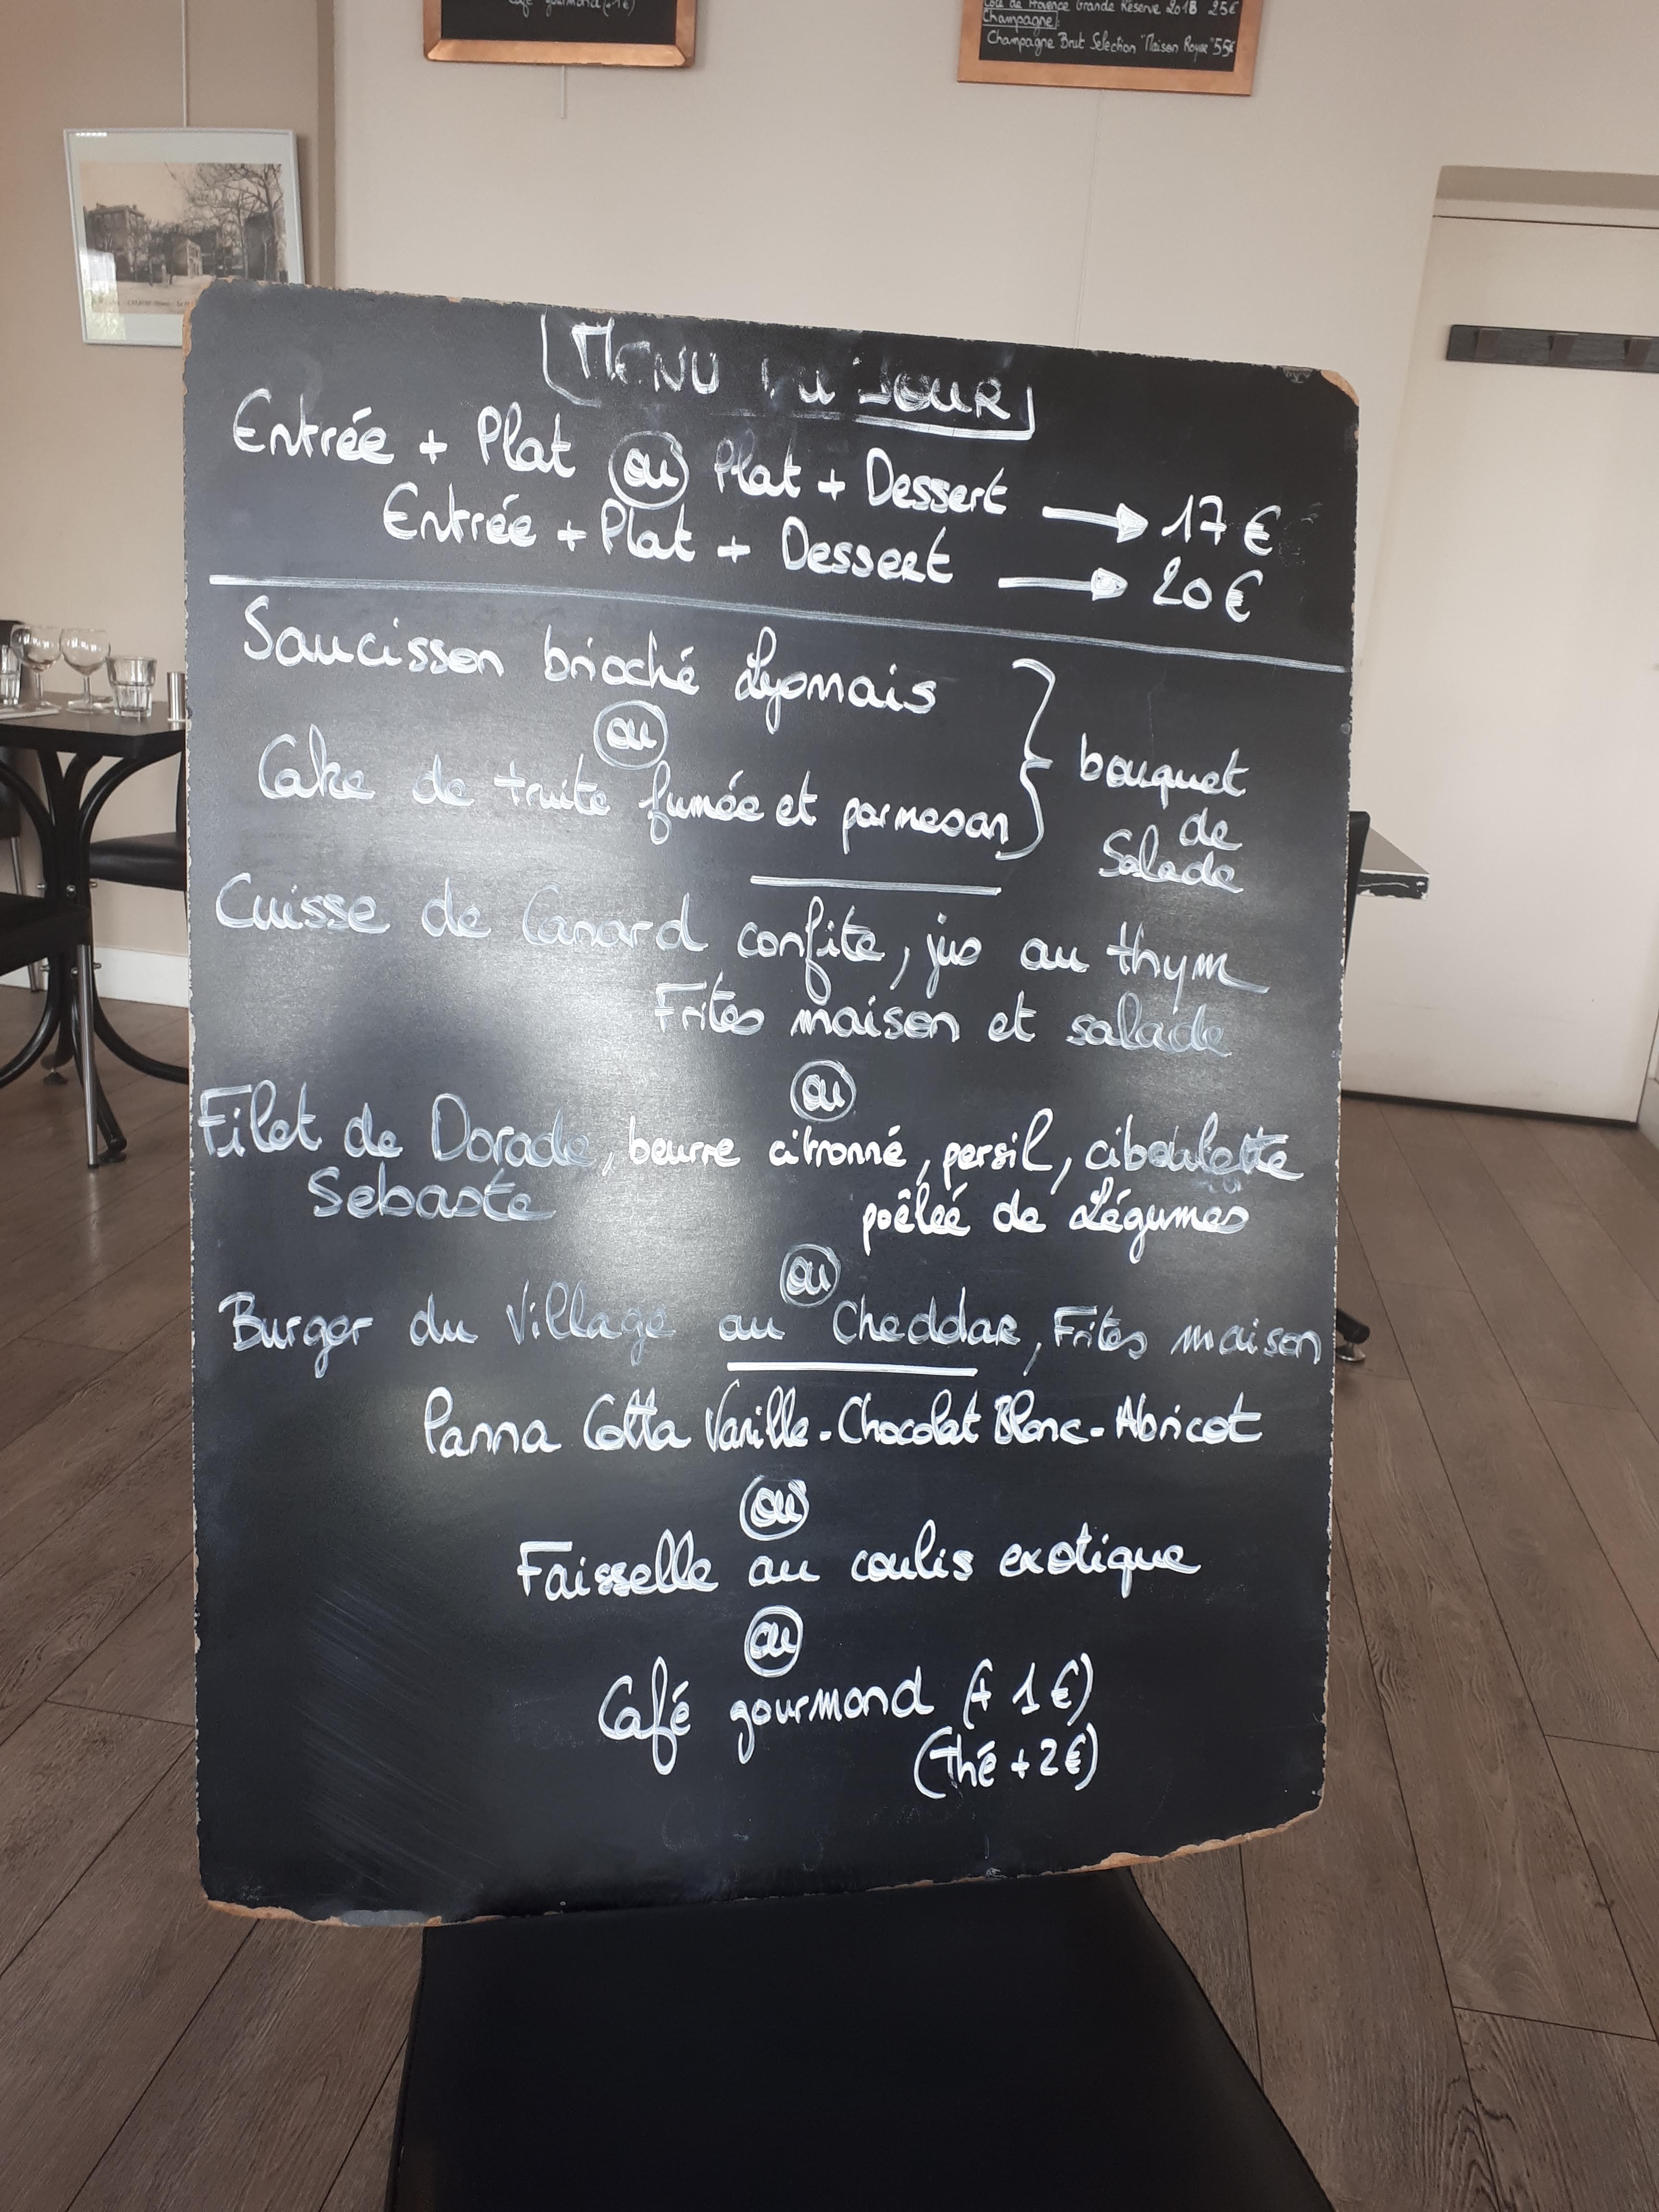 Café gourmand (+1€)
Côte de Provence Grande Réserve 2018 25€
Champagne:
Champagne Brut Sélection "Maison Royer" 55€
MENU DU JOUR
Entrée + Plat ou Plat + Dessert → 17 €
Entrée + Plat + Dessert → 20 €
Saucisson brioché Lyonnais
ou
Cake de truite fumée et parmesan
bouquet
de
Salade
Cuisse de Canard confite, jus au thym
Frites maison et salade
ou
Filet de Dorade, beurre citronné, persil, ciboulette
Sebaste
poêlée de Légumes
ou
Burger du Village au Cheddar, Frites maison
Panna Cotta Vanille - Chocolat Blanc - Abricot
ou
Faisselle au coulis exotique
ou
Café gourmand (+ 1 €)
(Thé + 2 €)